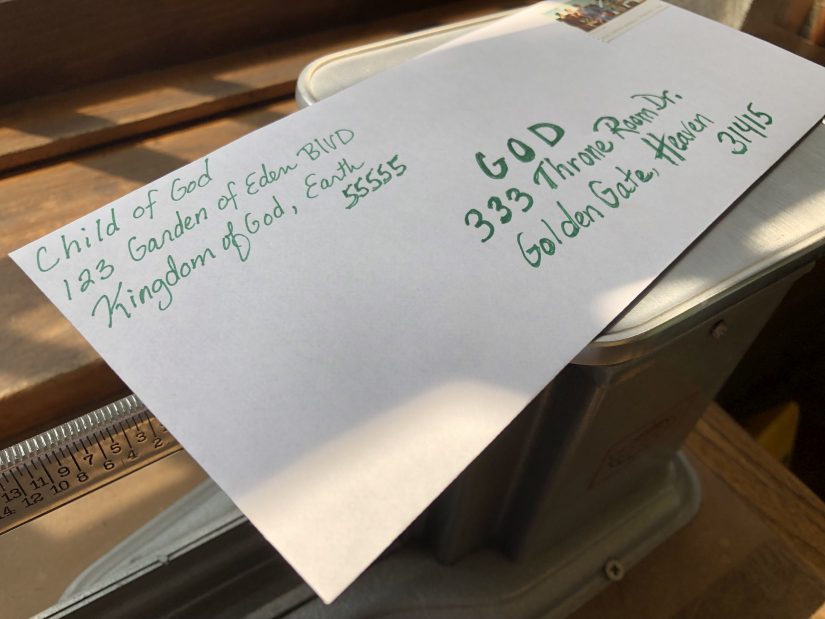 Child of God
123 Garden of Eden BLVD
Kingdom of God, Earth
55555
GOD
333 Throne Room Dr.
Golden Gate, Heaven
31415
13 11 9 7 5 3
14 12 10 8 6 4 2